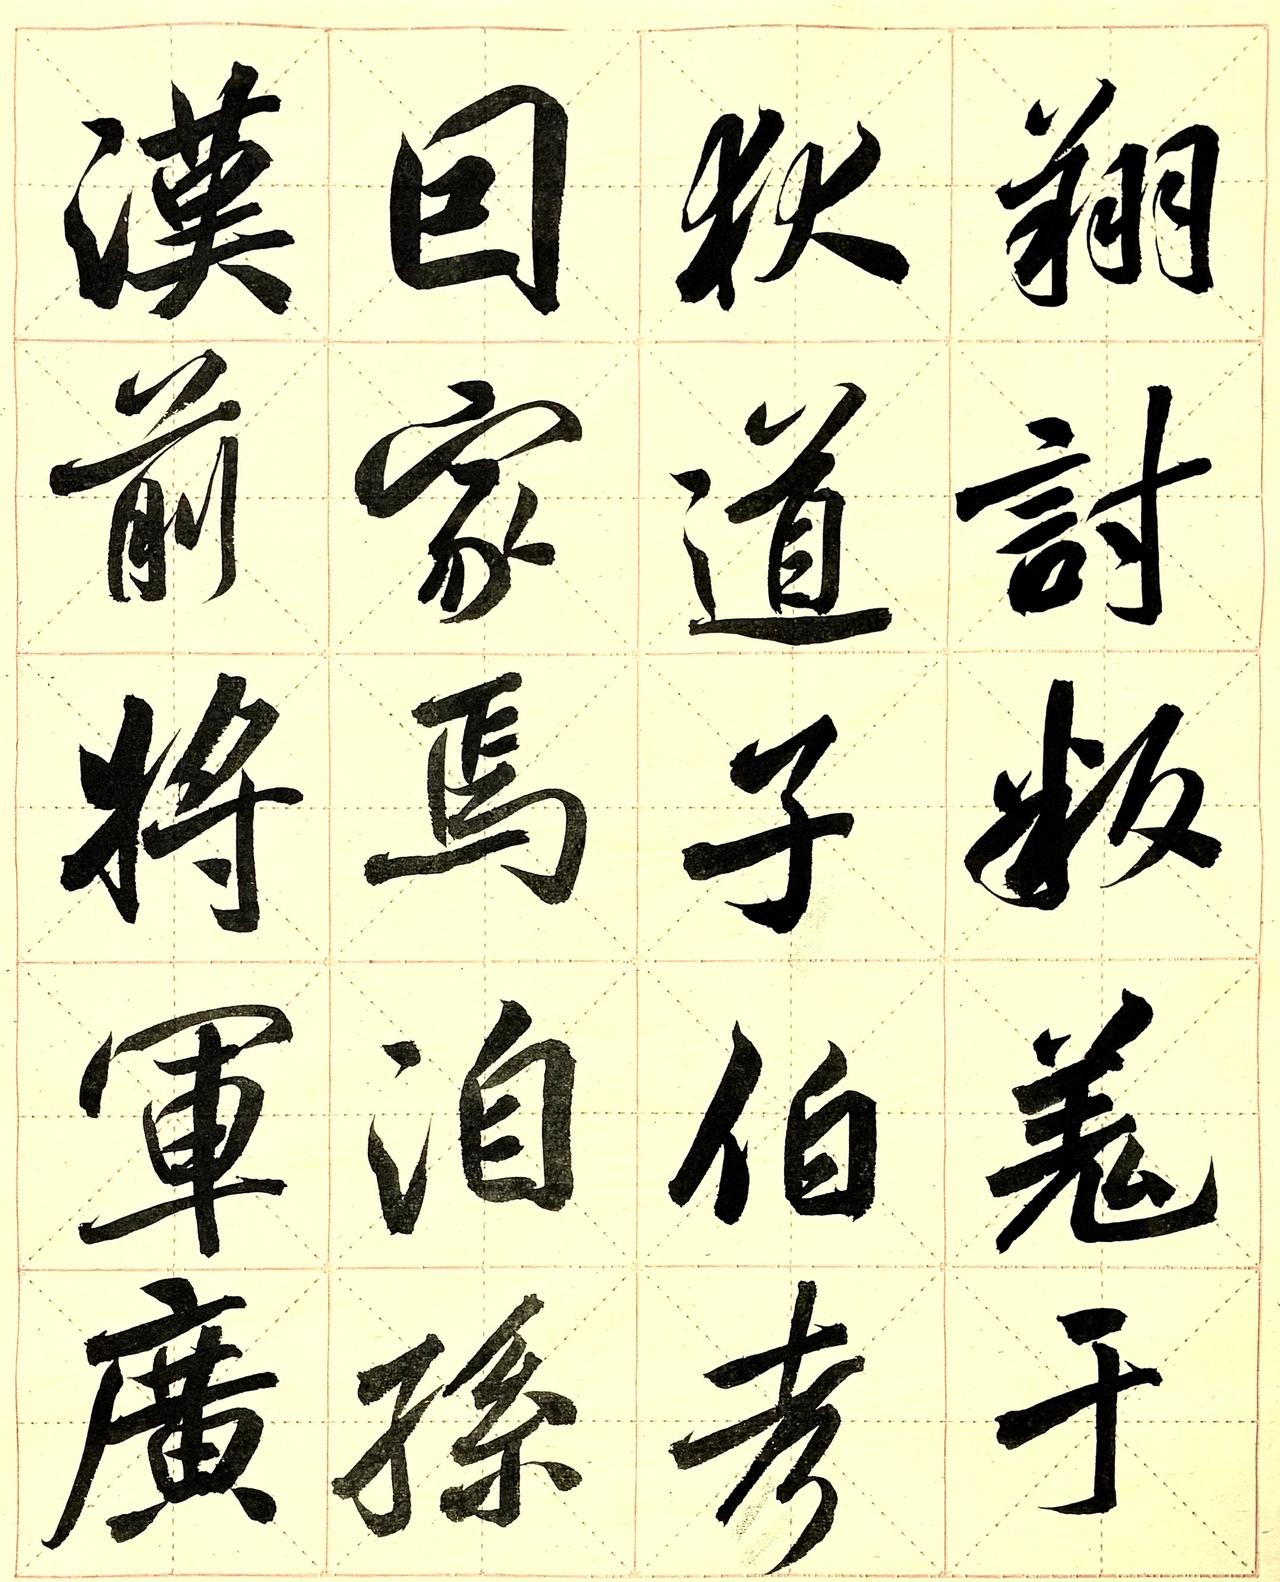 翔討叛羌于
狄道子伯考
囙家焉洎孫
漢前將軍廣